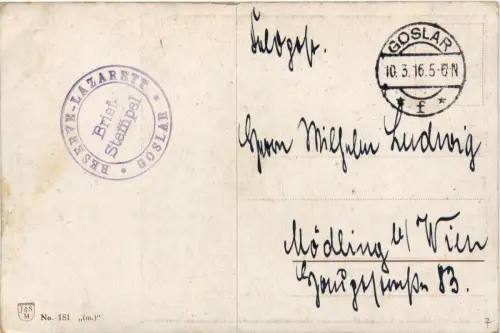 Feldpost.
GOSLAR
10.3.16.5-6N
* f *
RESERVE-LAZARETT * GOSLAR *
Brief-
Stempel
Herrn Wilhelm Ludwig
Mödling b/ Wien
Hauptstraße 83.
J&S
M
No. 181 „(m.)“